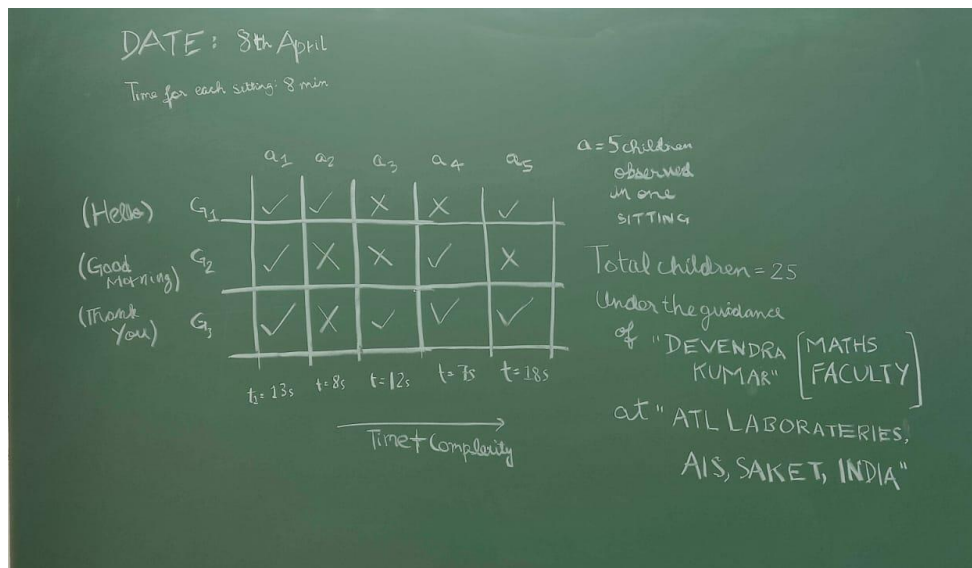 DATE: 8th April
Time for each sitting: 8 min
a1 a2 a3 a4 a5
(Hello) G1 ✓ ✓ × × ✓
(Good
Morning) G2 ✓ × × ✓ ×
(Thank
You) G3 ✓ × ✓ ✓ ✓
t1= 13s t= 8s t= 12s t= 7s t= 18s
Time+Complerity
a = 5 children
observed
in one
SITTING
Total children = 25
Under the guidance
of "DEVENDRA [MATHS
KUMAR" FACULTY]
at "ATL LABORATERIES,
AIS, SAKET, INDIA"